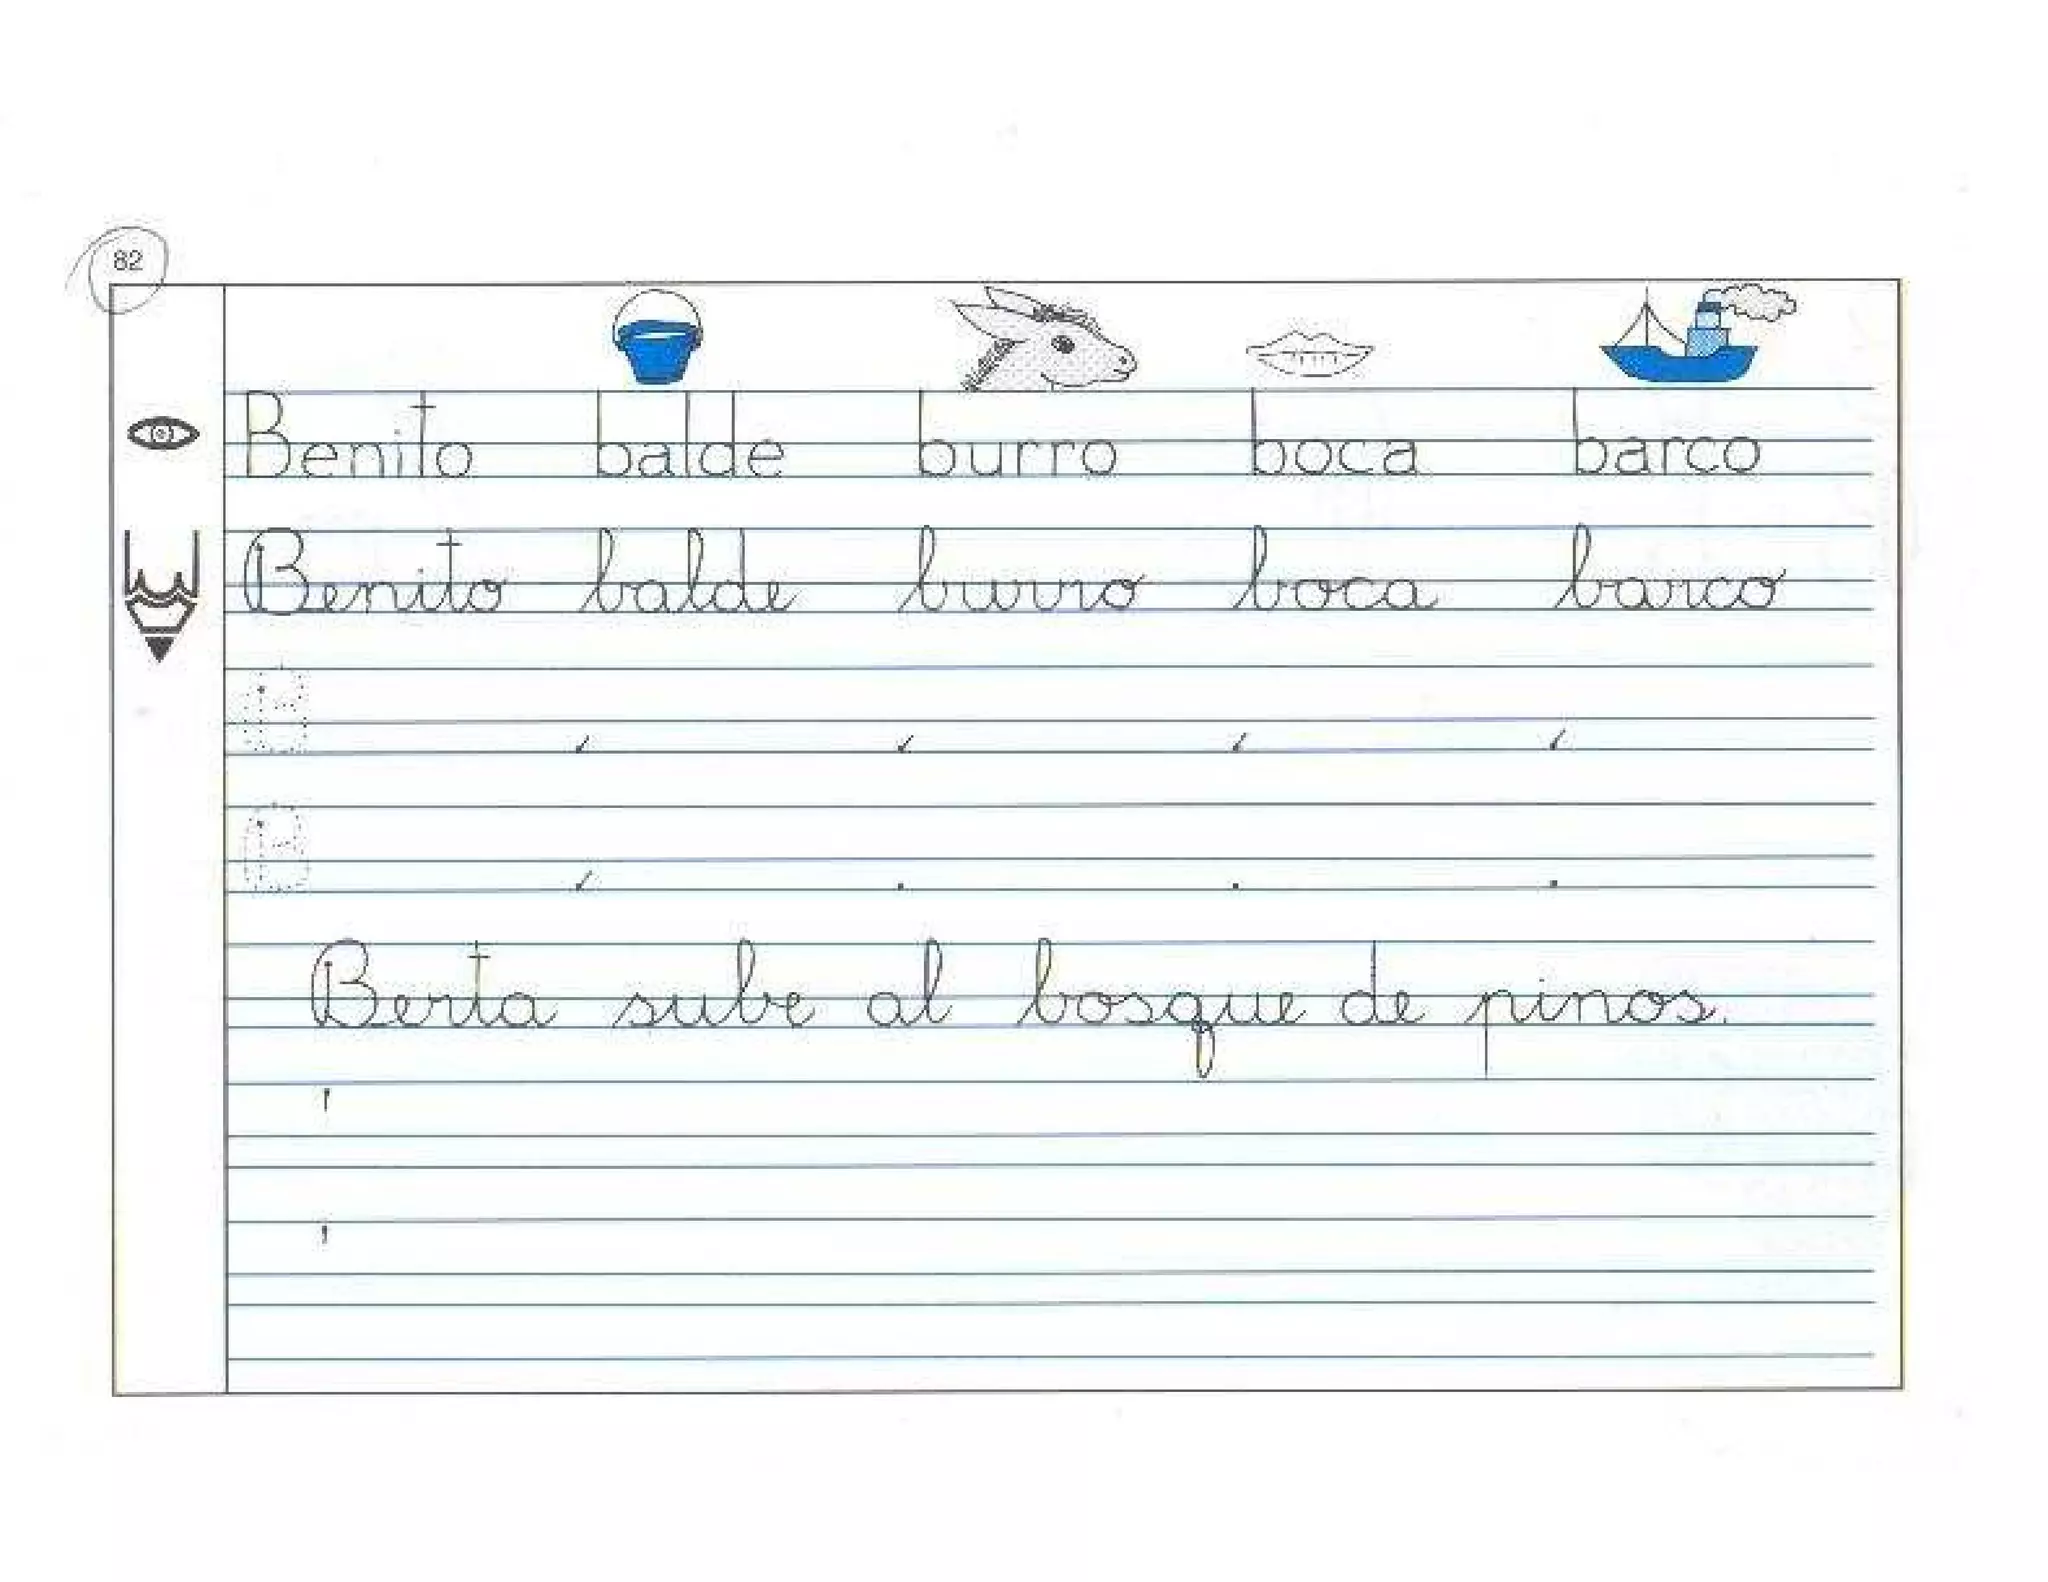 82
Benito balde burro boca barco
Benito balde burro boca barco
B
B
Berta sube al bosque de pinos.